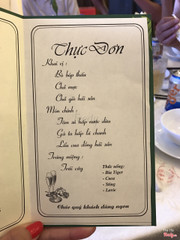 Thực Đơn
Khai vị :
- Bò bóp thấu
- Chả mực
- Chả giò hải sản
Món chính :
- Tôm sú hấp nước dừa
- Gà ta hấp lá chanh
- Lẩu cua đồng hải sản
Tráng miệng :
- Trái cây
Thức uống:
- Bia Tiger
- Coca
- Sting
- Lavie
Chúc quý khách dùng ngon